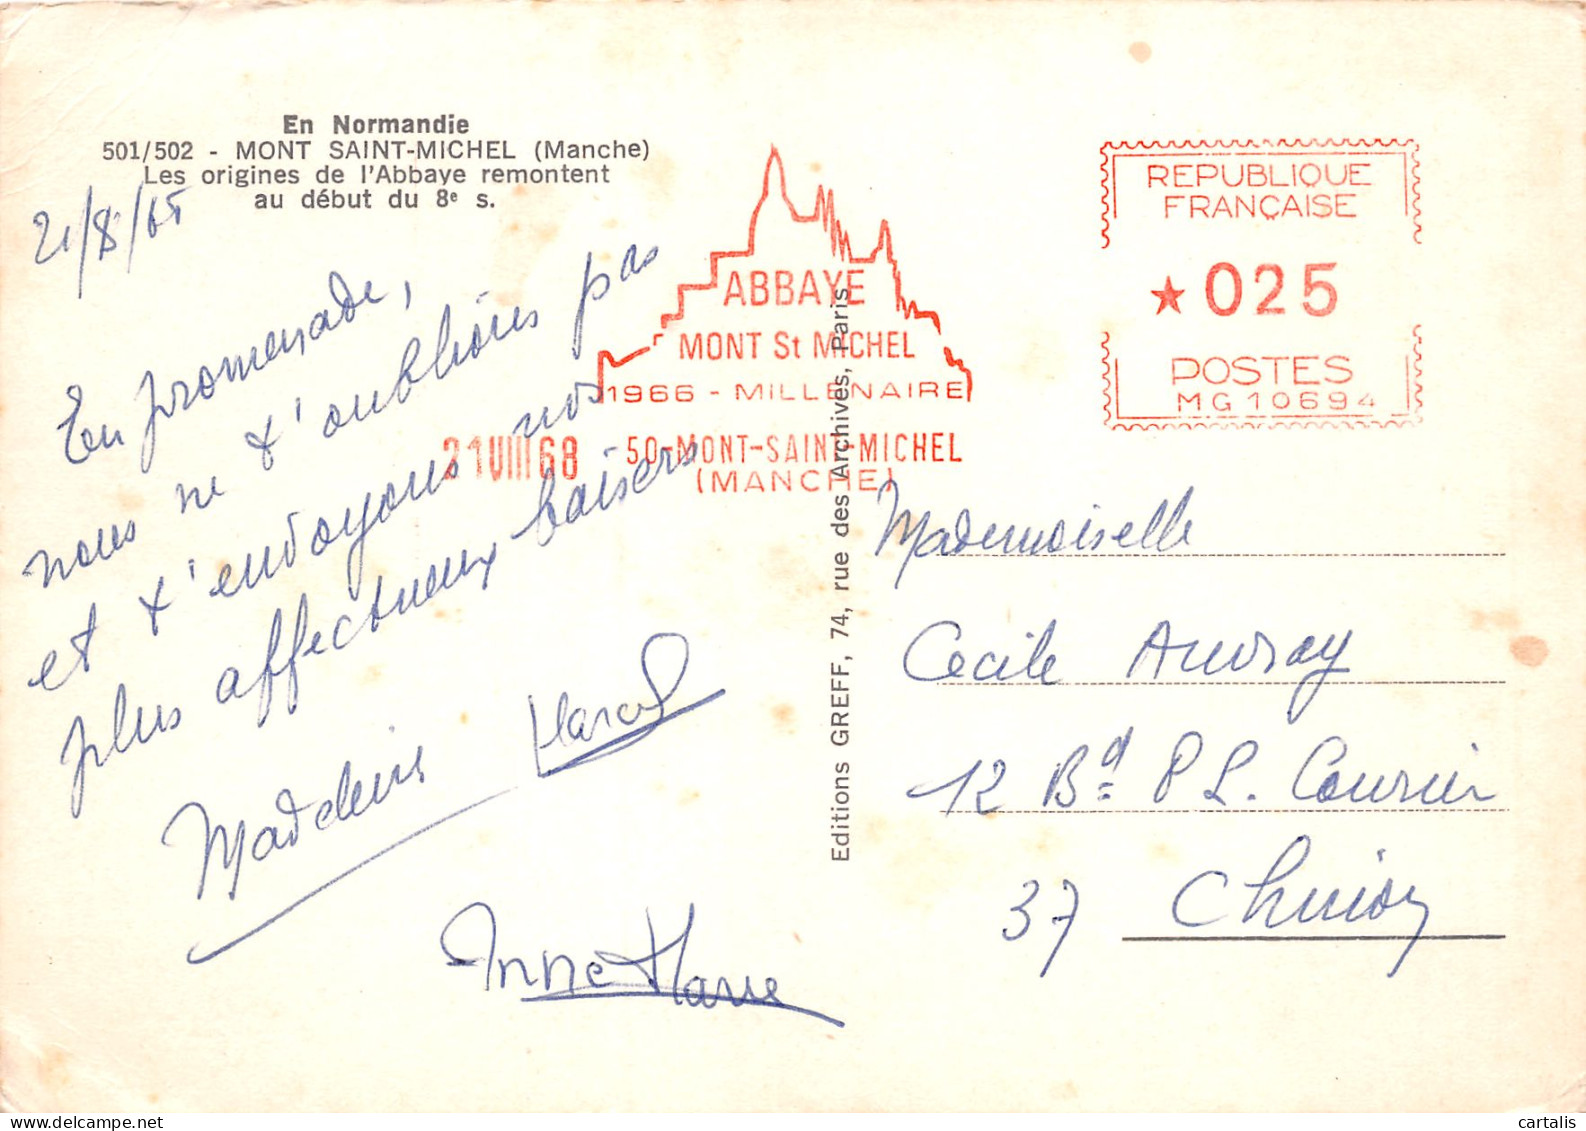 En Normandie
501/502 - MONT SAINT-MICHEL (Manche)
Les origines de l'Abbaye remontent
au début du 8e s.
21/8/68
En promenade,
nous ne t'oublions pas
et t'envoyons nos
plus affectueux baisers
Madeleine Marcel
Anne Marie
ABBAYE
MONT St MICHEL
1966 - MILLENAIRE
21 VIII 68 50-MONT-SAINT-MICHEL
(MANCHE)
REPUBLIQUE
FRANÇAISE
★ 025
POSTES
MG 10694
Editions GREFF, 74, rue des Archives, Paris
Mademoiselle
Cecile Auvray
12 Bd P L. Courier
37 Chinon
cartalis